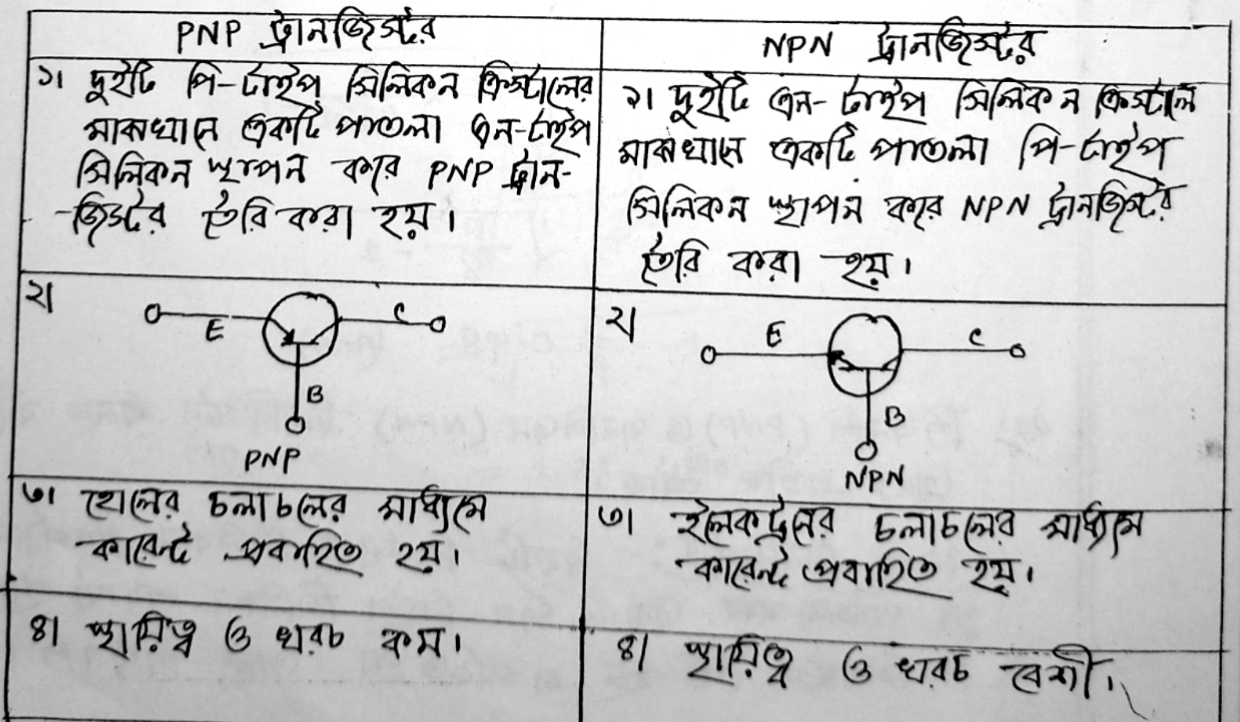 PNP ট্রানজিস্টর
১। দুইটি পি-টাইপ সিলিকন ক্রিস্টালের
মাঝখানে একটি পাতলা এন-টাইপ
সিলিকন স্থাপন করে PNP ট্রান-
-জিস্টর তৈরি করা হয়।
NPN ট্রানজিস্টর
১। দুইটি এন-টাইপ সিলিকন ক্রিস্টাল
মাঝখানে একটি পাতলা পি-টাইপ
সিলিকন স্থাপন করে NPN ট্রানজিস্টর
তৈরি করা হয়।
২।
E C
B
PNP
২।
E C
B
NPN
৩। হোলের চলাচলের মাধ্যমে
কারেন্ট প্রবাহিত হয়।
৩। ইলেকট্রনের চলাচলের মাধ্যমে
কারেন্ট প্রবাহিত হয়।
৪। স্থায়িত্ব ও খরচ কম।
৪। স্থায়িত্ব ও খরচ বেশী।